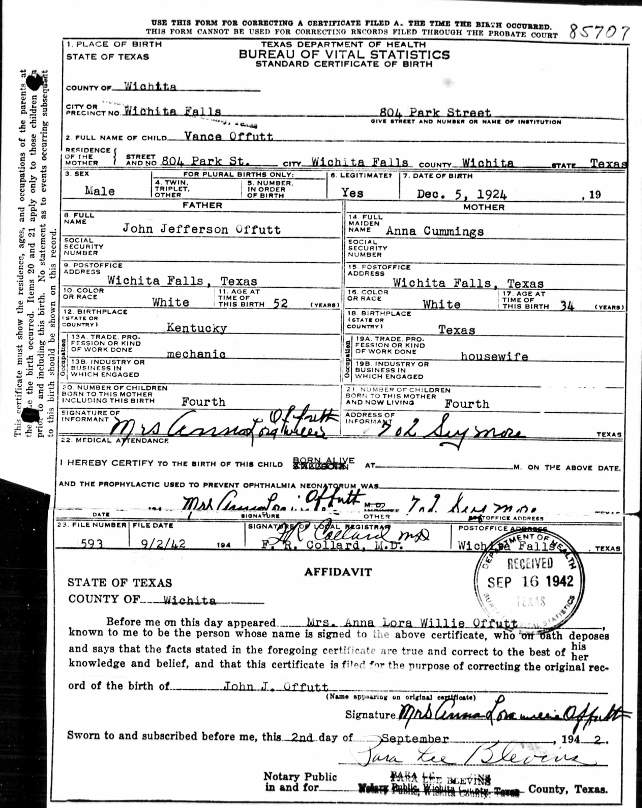 USE THIS FORM FOR CORRECTING A CERTIFICATE FILED A. THE TIME THE BIRTH OCCURRED.
THIS FORM CANNOT BE USED FOR CORRECTING RECORDS FILED THROUGH THE PROBATE COURT
85707
1. PLACE OF BIRTH
STATE OF TEXAS
TEXAS DEPARTMENT OF HEALTH
BUREAU OF VITAL STATISTICS
STANDARD CERTIFICATE OF BIRTH
COUNTY OF Wichita
CITY OR PRECINCT NO. Wichita Falls 804 Park Street
GIVE STREET AND NUMBER OR NAME OF INSTITUTION
2. FULL NAME OF CHILD Vance Offutt
RESIDENCE OF THE MOTHER STREET AND NO 804 Park St. CITY Wichita Falls COUNTY Wichita STATE Texas
3. SEX Male
FOR PLURAL BIRTHS ONLY:
4. TWIN, TRIPLET, OTHER
5. NUMBER, IN ORDER OF BIRTH
6. LEGITIMATE? Yes
7. DATE OF BIRTH Dec. 5, 1924 , 19
FATHER
MOTHER
8 FULL NAME John Jefferson Offutt
14. FULL MAIDEN NAME Anna Cummings
SOCIAL SECURITY NUMBER
SOCIAL SECURITY NUMBER
9. POSTOFFICE ADDRESS Wichita Falls, Texas
15. POSTOFFICE ADDRESS Wichita Falls, Texas
10. COLOR OR RACE White
11. AGE AT TIME OF THIS BIRTH 52 (YEARS)
16. COLOR OR RACE White
17. AGE AT TIME OF THIS BIRTH 34 (YEARS)
12. BIRTHPLACE (STATE OR COUNTRY) Kentucky
18. BIRTHPLACE (STATE OR COUNTRY) Texas
Occupation
13A. TRADE, PROFESSION OR KIND OF WORK DONE mechanic
13B. INDUSTRY OR BUSINESS IN WHICH ENGAGED
Occupation
19A. TRADE, PROFESSION OR KIND OF WORK DONE housewife
19B. INDUSTRY OR BUSINESS IN WHICH ENGAGED
20 NUMBER OF CHILDREN BORN TO THIS MOTHER INCLUDING THIS BIRTH Fourth
21 NUMBER OF CHILDREN BORN TO THIS MOTHER AND NOW LIVING Fourth
SIGNATURE OF INFORMANT Mrs Anna Lora Willie Offutt
ADDRESS OF INFORMANT 702 Seymore TEXAS
22. MEDICAL ATTENDANCE
I HEREBY CERTIFY TO THE BIRTH OF THIS CHILD BORN ALIVE AT M. ON THE ABOVE DATE.
AND THE PROPHYLACTIC USED TO PREVENT OPHTHALMIA NEONATORUM WAS
Mrs Anna Lora Offutt M.D. 702 Seymore
DATE SIGNATURE OTHER POSTOFFICE ADDRESS
23. FILE NUMBER 593
FILE DATE 9/2/42 194
SIGNATURE OF LOCAL REGISTRAR
F. R. Collard MD
F. R. Collard, M.D.
POSTOFFICE ADDRESS
Wichita Falls, TEXAS
AFFIDAVIT
DEPARTMENT OF HEALTH
RECEIVED
SEP 16 1942
TEXAS
BUREAU OF VITAL STATISTICS
STATE OF TEXAS
COUNTY OF Wichita
Before me on this day appeared Mrs. Anna Lora Willie Offutt ,
known to me to be the person whose name is signed to the above certificate, who on oath deposes
and says that the facts stated in the foregoing certificate are true and correct to the best of his her
knowledge and belief, and that this certificate is filed for the purpose of correcting the original rec-
ord of the birth of John J. Offutt
(Name appearing on original certificate)
Signature Mrs Anna Lora Willie Offutt
Sworn to and subscribed before me, this 2nd day of September , 194 2.
Zara Lee Blevins
ZARA LEE BLEVINS
Notary Public in and for Notary Public, Wichita County, Texas County, Texas.
This certificate must show the residence, ages, and occupations of the parents at
the time the birth occurred. Items 20 and 21 apply only to those children
prior to and including this birth. No statement as to events occurring subsequent
to this birth should be shown on this record.